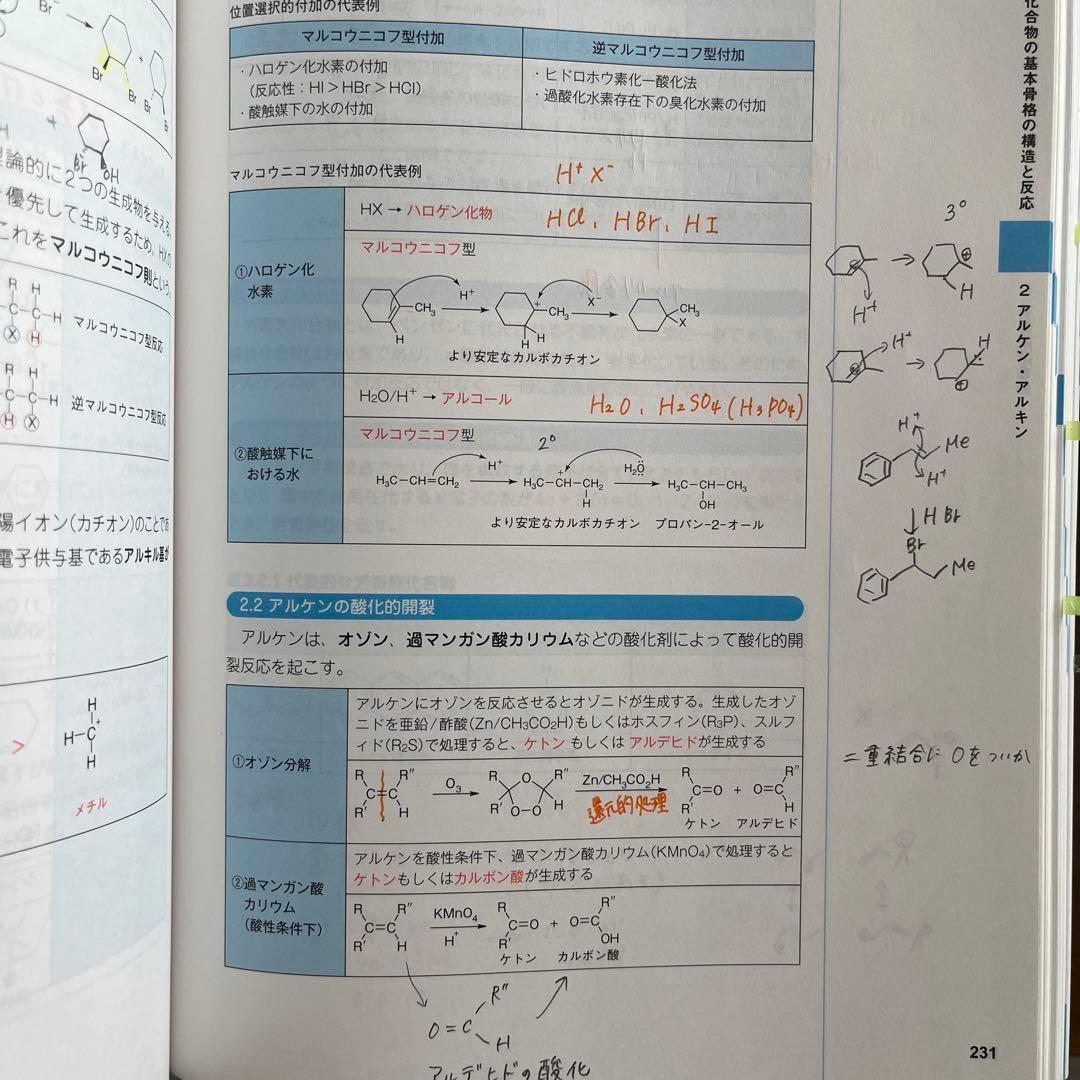 位置選択的付加の代表例
マルコウニコフ型付加
逆マルコウニコフ型付加
・ハロゲン化水素の付加
(反応性：HI＞HBr＞HCl)
・酸触媒下の水の付加
・ヒドロホウ素化ー酸化法
・過酸化水素存在下の臭化水素の付加
マルコウニコフ型付加の代表例
H⁺ X⁻
①ハロゲン化
水素
HX → ハロゲン化物
HCl、HBr、HI
マルコウニコフ型
H⁺
X⁻
CH₃
CH₃
CH₃
X
H
H
H
より安定なカルボカチオン
②酸触媒下に
おける水
H₂O/H⁺ → アルコール
H₂O、H₂SO₄(H₃PO₄)
マルコウニコフ型
2°
H⁺
H₂Ö
H₃C−CH=CH₂
H₃C−CH−CH₂
H₃C−CH−CH₃
H
OH
より安定なカルボカチオン
プロパン-2-オール
2.2 アルケンの酸化的開裂
アルケンは、オゾン、過マンガン酸カリウムなどの酸化剤によって酸化的開
裂反応を起こす。
①オゾン分解
アルケンにオゾンを反応させるとオゾニドが生成する。生成したオゾ
ニドを亜鉛/酢酸(Zn/CH₃CO₂H)もしくはホスフィン(R₃P)、スルフ
ィド(R₂S)で処理すると、ケトン もしくは アルデヒドが生成する
R R″
C=C
R′ H
O₃
R O R″
R′ O−O H
Zn/CH₃CO₂H
還元的処理
R
C=O
R′
+
R″
O=C
H
ケトン
アルデヒド
②過マンガン酸
カリウム
(酸性条件下)
アルケンを酸性条件下、過マンガン酸カリウム(KMnO₄)で処理すると
ケトンもしくはカルボン酸が生成する
R R″
C=C
R′ H
KMnO₄
H⁺
R
C=O
R′
+
R″
O=C
OH
ケトン
カルボン酸
R″
O=C
H
アルデヒドの酸化
231
化合物の基本骨格の構造と反応
2 アルケン・アルキン
3°
H⁺
H
H⁺
H
H⁺
Me
H⁺
HBr
Br
Me
二重結合に Oをついか
Br⁻
+
Br
Br
Br
+
Br
OH
理論的に2つの生成物を与える
優先して生成するため、HXの
これをマルコウニコフ則という
R H
C−C−H
X H
マルコウニコフ型反応
R H
C−C−H
H X
逆マルコウニコフ型反応
陽イオン(カチオン)のことで
電子供与基であるアルキル基が
H
H−C⁺
H
＞
メチル